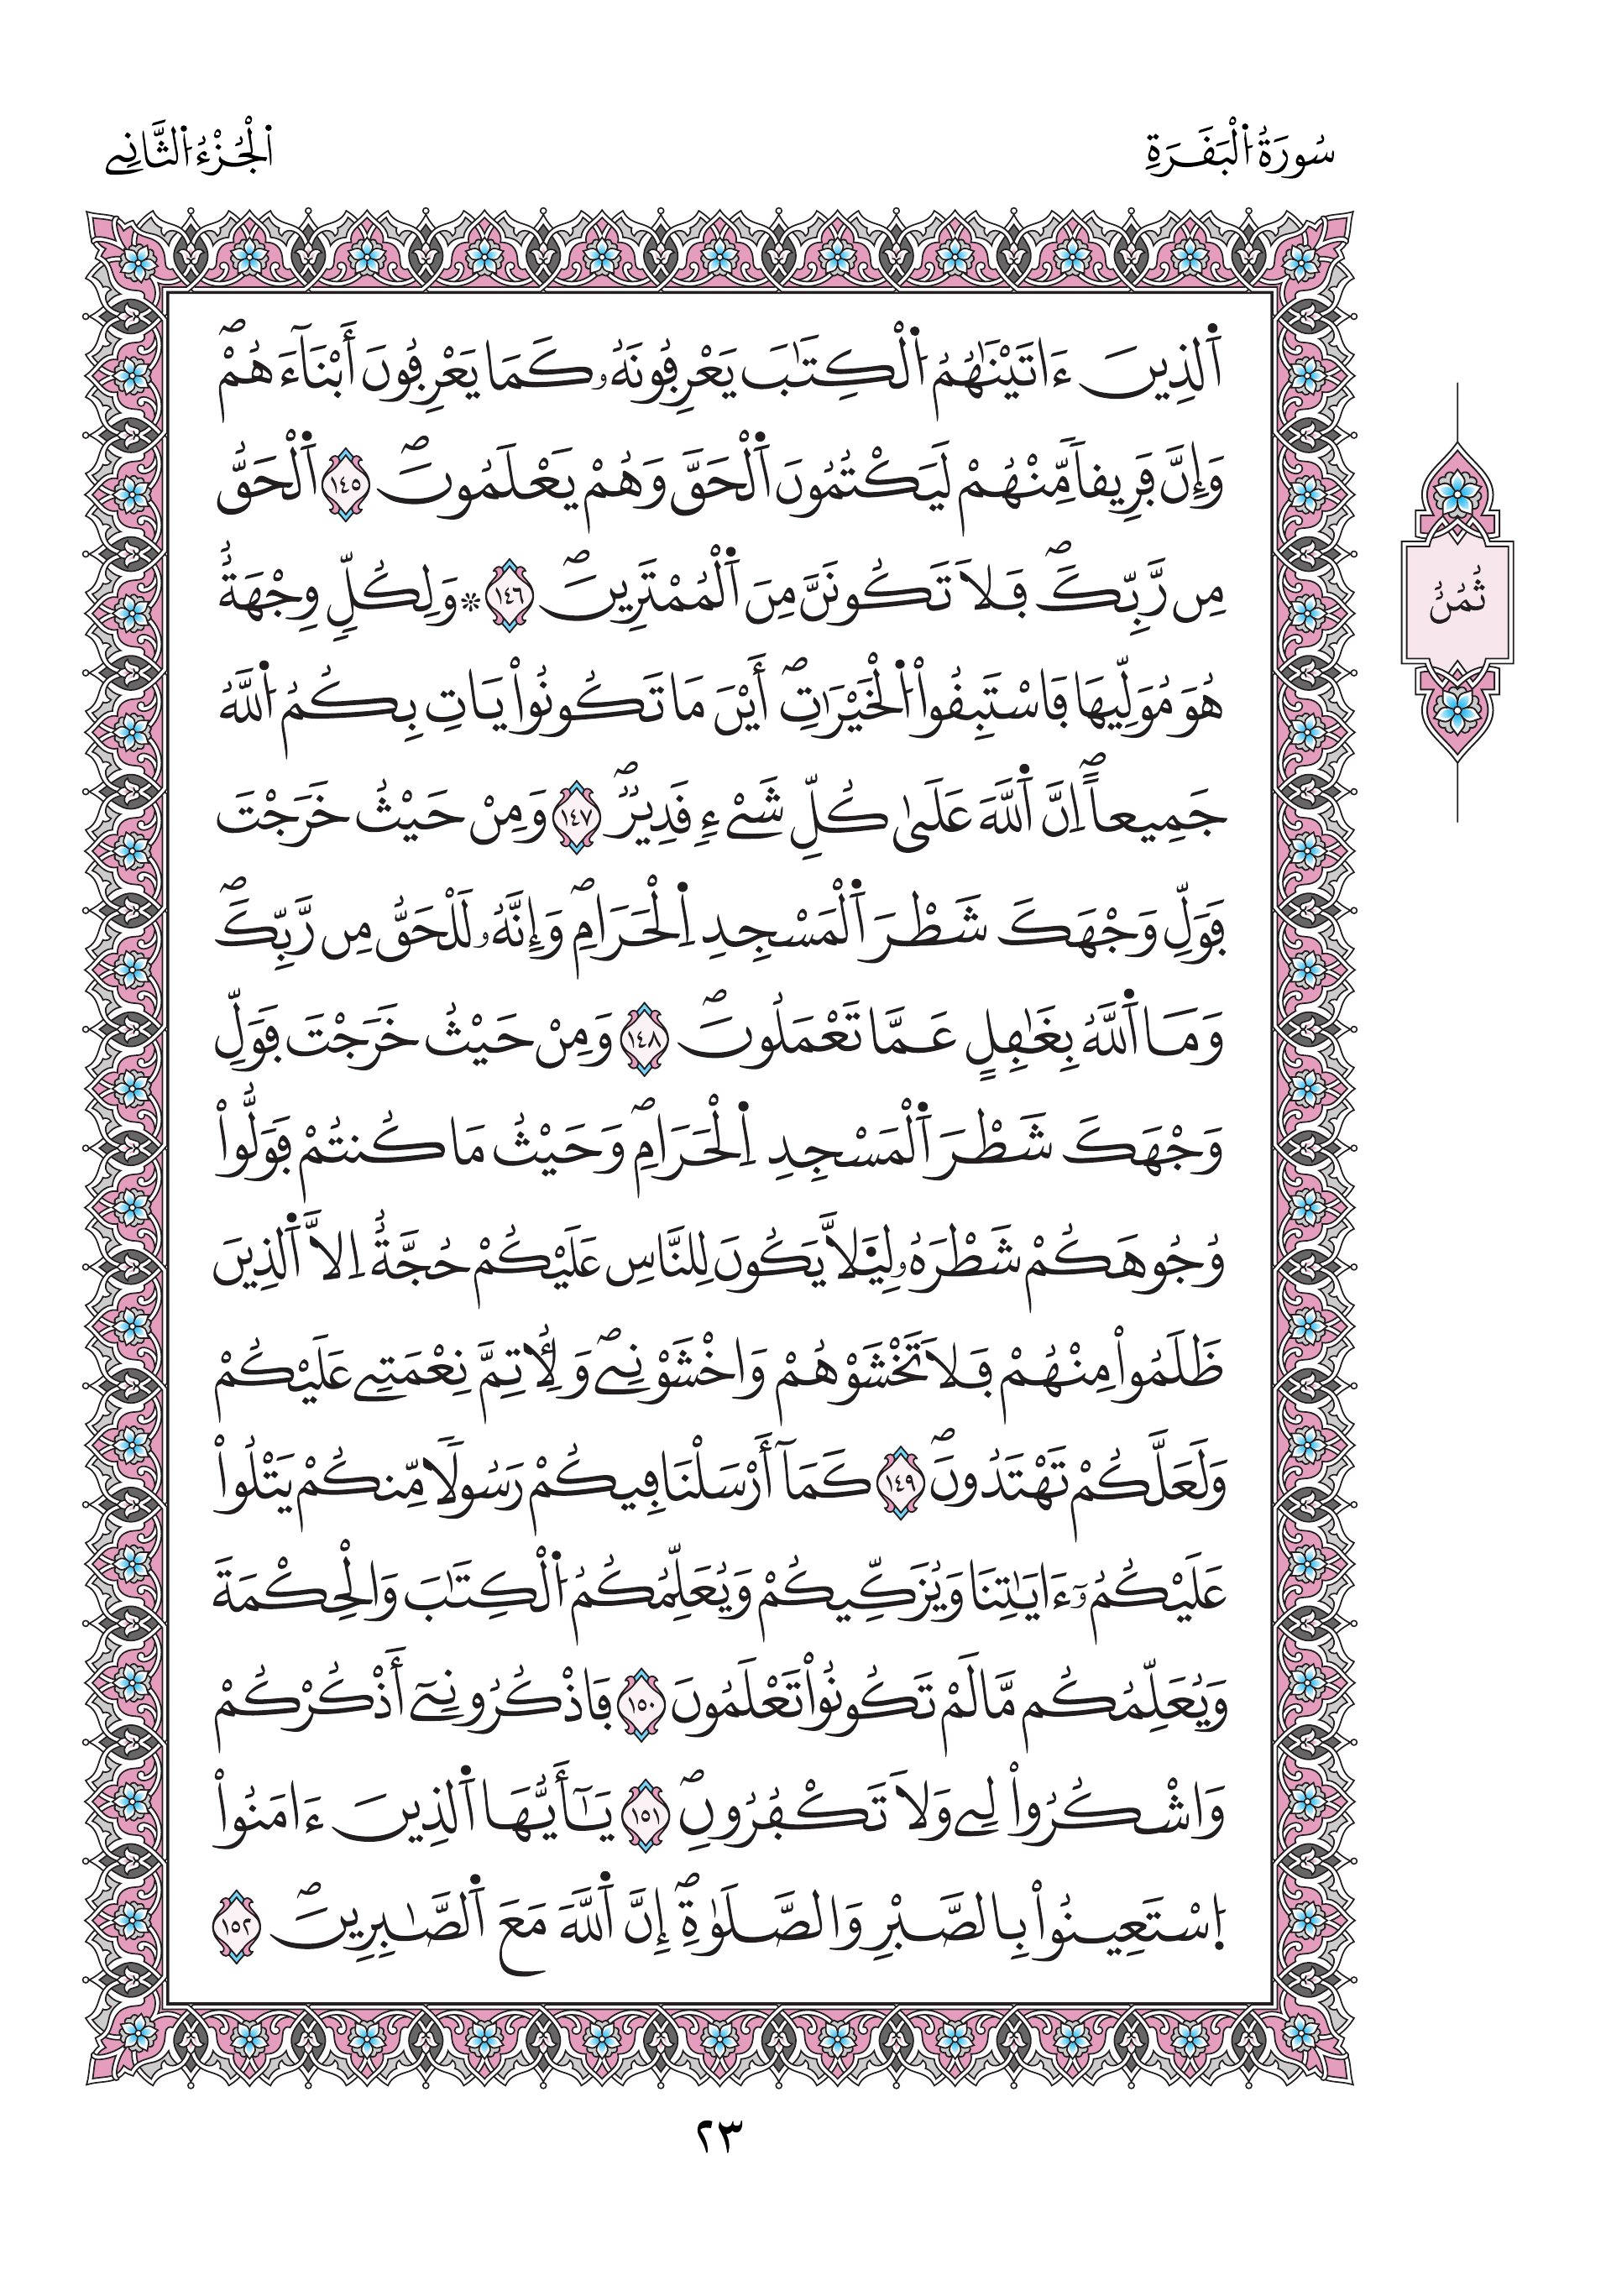 سُورَةُ اُ۬لْبَقَرَةِ
اُ۬لْجُزْءُ اُ۬لثَّانِے
اَ۬لذِينَ ءَاتَيْنَٰهُمُ اُ۬لْكِتَٰبَ يَعْرِفُونَهُۥ كَمَا يَعْرِفُونَ أَبْنَآءَهُمْۖ
وَإِنَّ فَرِيقاٗ مِّنْهُمْ لَيَكْتُمُونَ اَ۬لْحَقَّ وَهُمْ يَعْلَمُونَۖ ١٤٥ اَ۬لْحَقُّ
مِن رَّبِّكَۖ فَلَا تَكُونَنَّ مِنَ اَ۬لْمُمْتَرِينَۖ ١٤٦ ۞وَلِكُلّٖ وِجْهَةٌ
هُوَ مُوَلِّيهَا فَاسْتَبِقُواْ اُ۬لْخَيْرَٰتِۖ أَيْنَ مَا تَكُونُواْ يَاتِ بِكُمُ اُ۬للَّهُ
جَمِيعاًۖ اِنَّ اَ۬للَّهَ عَلَىٰ كُلِّ شَےْءٖ قَدِيرٞۖ ١٤٧ وَمِنْ حَيْثُ خَرَجْتَ
فَوَلِّ وَجْهَكَ شَطْرَ اَ۬لْمَسْجِدِ اِ۬لْحَرَامِۖ وَإِنَّهُۥ لَلْحَقُّ مِن رَّبِّكَۖ
وَمَا اَ۬للَّهُ بِغَٰفِلٍ عَمَّا تَعْمَلُونَۖ ١٤٨ وَمِنْ حَيْثُ خَرَجْتَ فَوَلِّ
وَجْهَكَ شَطْرَ اَ۬لْمَسْجِدِ اِ۬لْحَرَامِۖ وَحَيْثُ مَا كُنتُمْ فَوَلُّواْ
وُجُوهَكُمْ شَطْرَهُۥ لِيَ۬لَّا يَكُونَ لِلنَّاسِ عَلَيْكُمْ حُجَّةٌ اِلَّا اَ۬لذِينَ
ظَلَمُواْ مِنْهُمْ فَلَا تَخْشَوْهُمْ وَاخْشَوْنِےۖ وَلِأُتِمَّ نِعْمَتِے عَلَيْكُمْ
وَلَعَلَّكُمْ تَهْتَدُونَۖ ١٤٩ كَمَآ أَرْسَلْنَا فِيكُمْ رَسُولاٗ مِّنكُمْ يَتْلُواْ
عَلَيْكُمُۥٓ ءَايَٰتِنَا وَيُزَكِّيكُمْ وَيُعَلِّمُكُمُ اُ۬لْكِتَٰبَ وَالْحِكْمَةَ
وَيُعَلِّمُكُم مَّا لَمْ تَكُونُواْ تَعْلَمُونَ ١٥٠ فَاذْكُرُونِےٓ أَذْكُرْكُمْ
وَاشْكُرُواْ لِے وَلَا تَكْفُرُونِۖ ١٥١ يَٰٓأَيُّهَا اَ۬لذِينَ ءَامَنُواْ
اُ۪سْتَعِينُواْ بِالصَّبْرِ وَالصَّلَوٰةِۖ إِنَّ اَ۬للَّهَ مَعَ اَ۬لصَّٰبِرِينَۖ ١٥٢
ثُمُنُ
٢٣